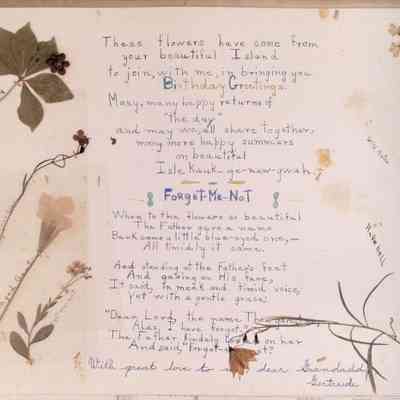 These flowers have come from
your beautiful Island
to join, with me, in bringing you
Birthday Greetings.
Many, many happy returns of
"the day"
and may we all share together,
many more happy summers
on beautiful
Isle Kauk-ge-nah-gwah.
Forget-Me-Not
When to the flowers so beautiful
The Father gave a name
Back came a little blue-eyed one,—
All timidly it came.
And standing at the Father's feet
And gazing in His face,
It said, in meek and timid voice,
Yet with a gentle grace:
"Dear Lord, the name Thou gavest
Alas, I have forgot."
The Father kindly looked on her
And said, "Forget-me-not"
With great love to my dear Granddaddy
Gertrude